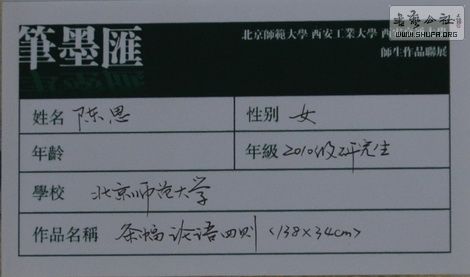 書藝公社
WWW.SHUFA.ORG
筆墨匯
北京師範大學 西安工業大學 西
師生作品聯展
姓名 陈思
性别 女
年齡
年級 2010级研究生
學校 北京师范大学
作品名稱 条幅 论语四则 (138×34cm)